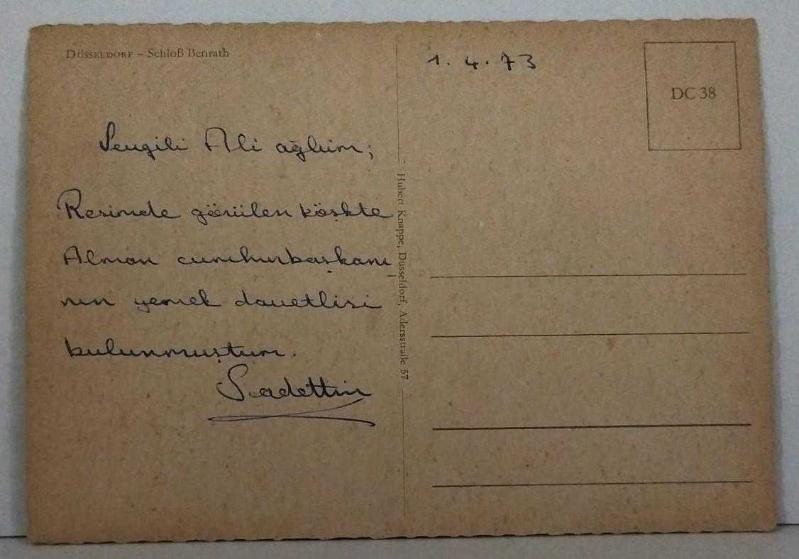 DÜSSELDORF – Schloß Benrath
1. 4. 73
DC 38
Sevgili Ali ağlum;
Resimde görülen köşkte
Alman cumhurbaşkanı
nın yemek davetlisi
bulunmuştum.
Sadettin
Hubert Knappe, Düsseldorf, Adersstraße 57